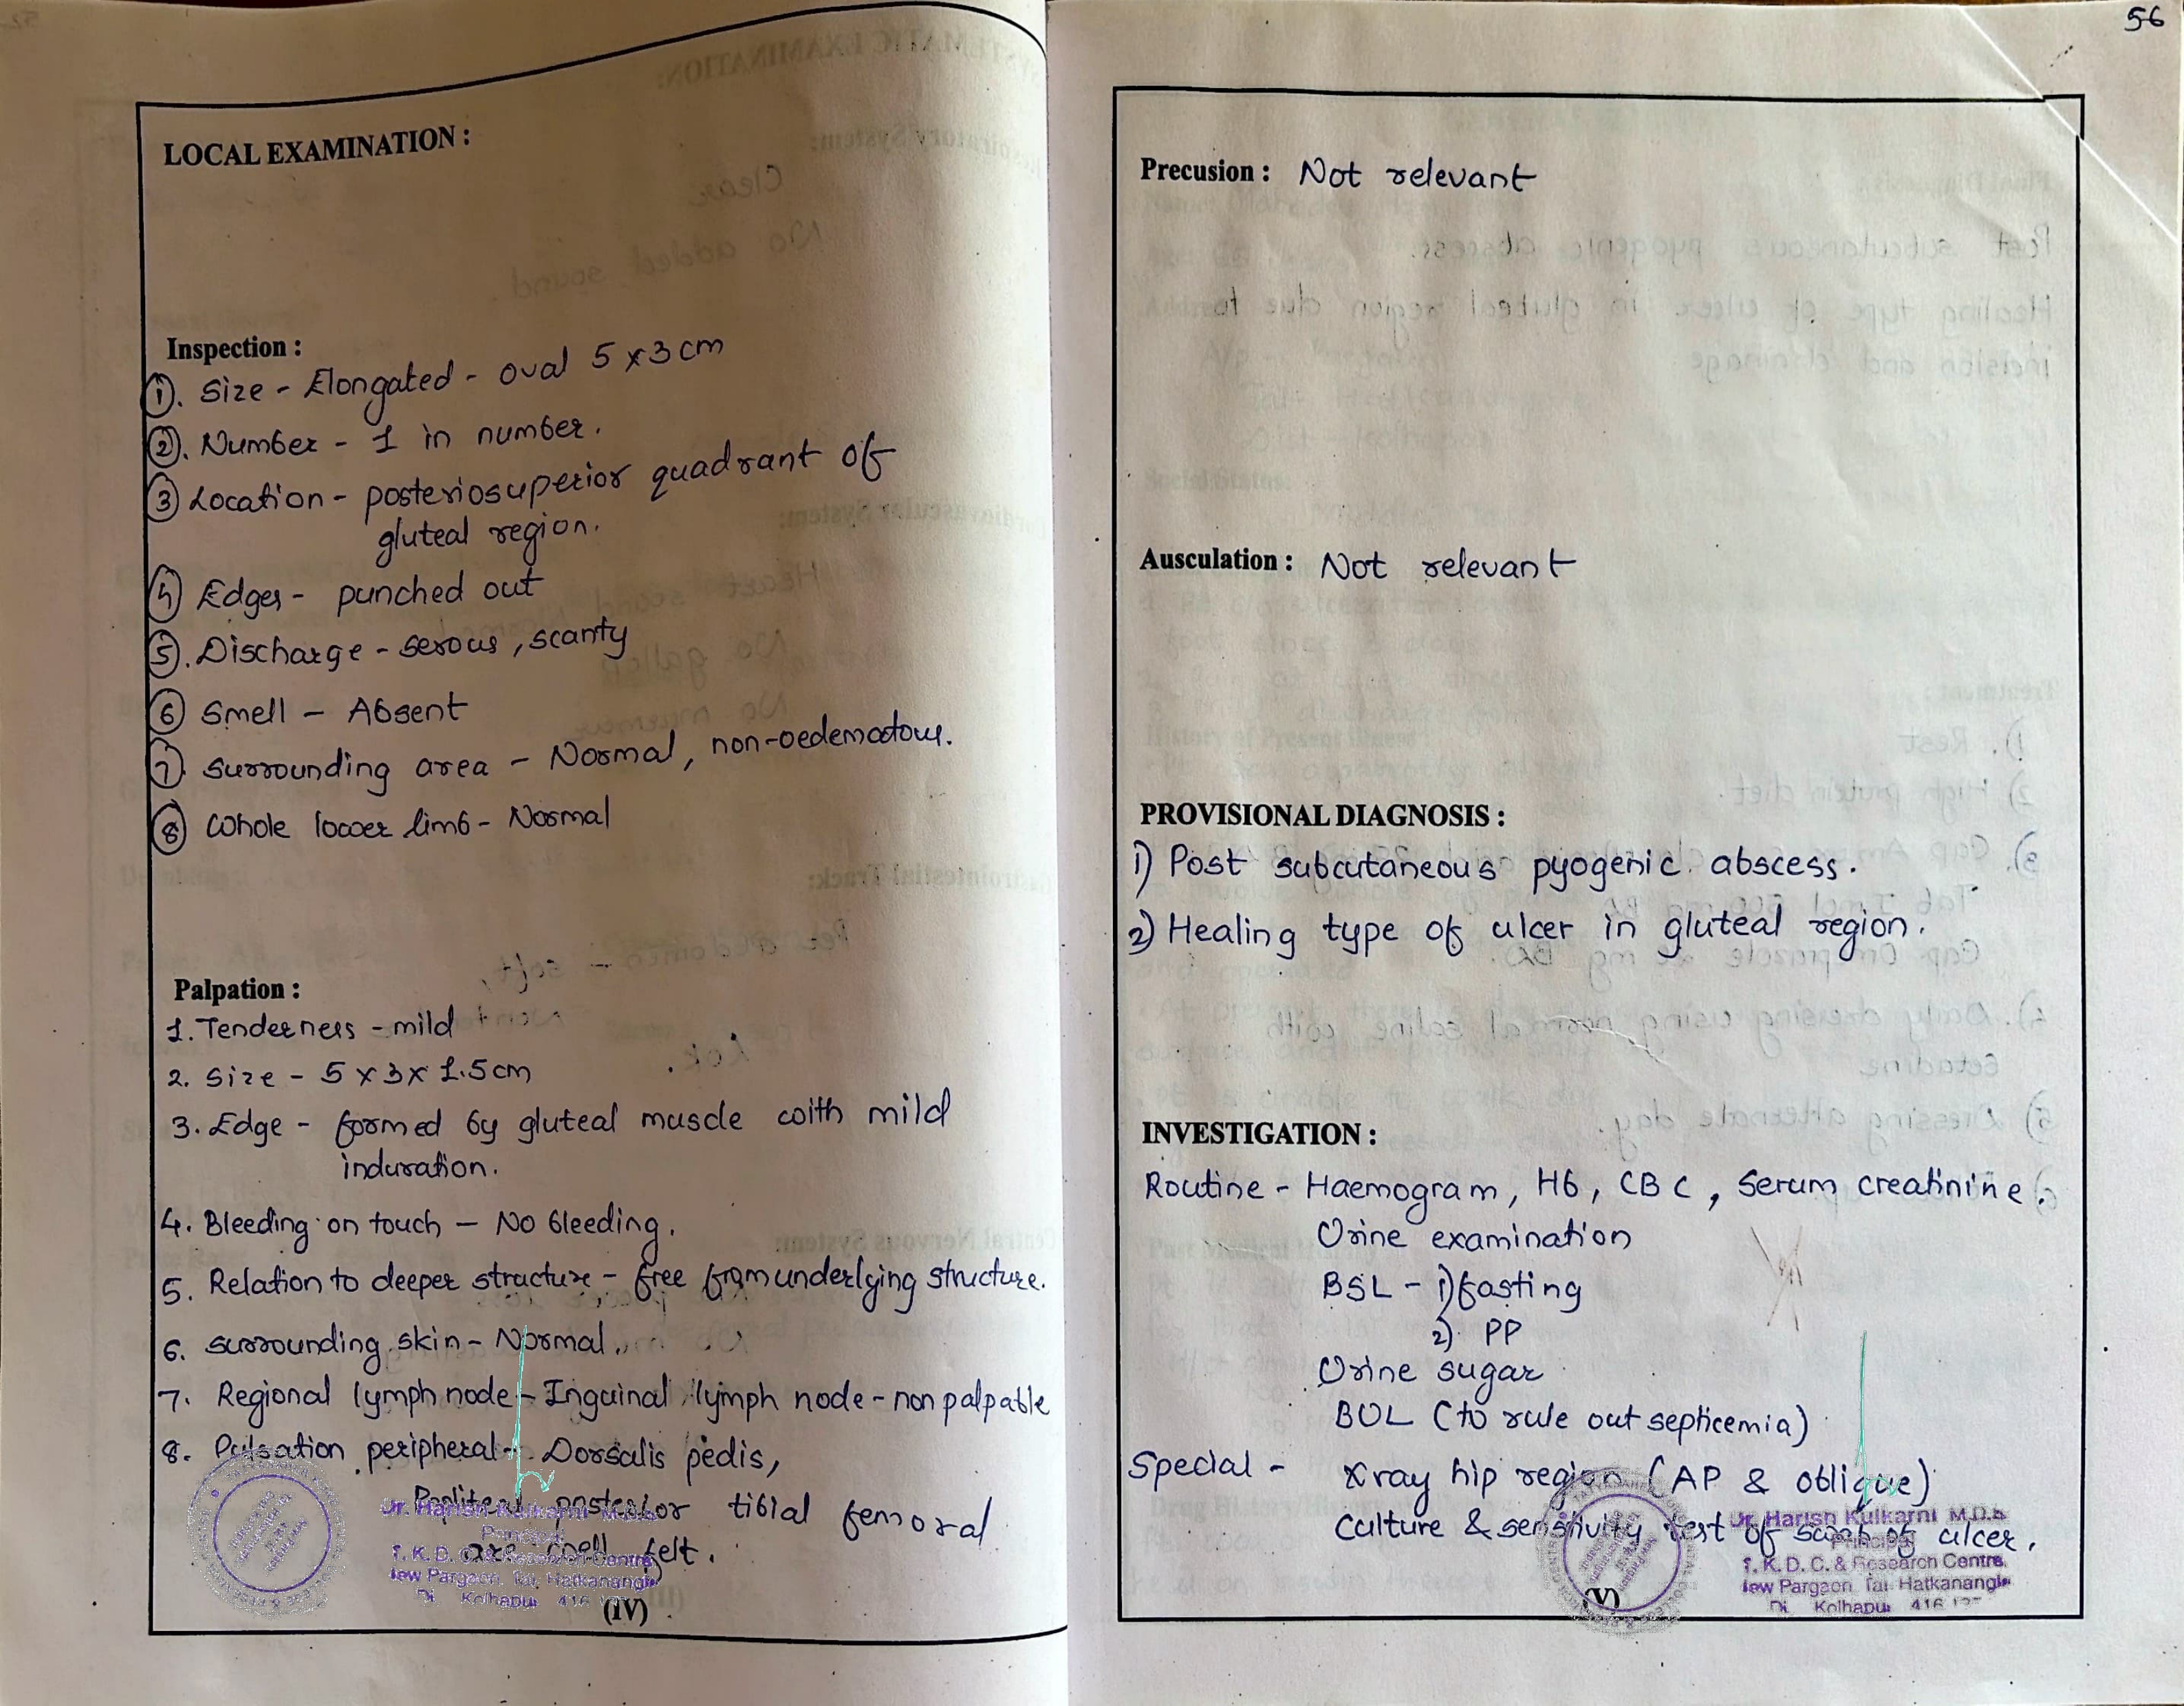 LOCAL EXAMINATION :
Inspection :
①. Size - Elongated - oval 5 x 3 cm
②. Number - 1 in number.
③ Location - posteriosuperior quadrant of
gluteal region.
④ Edges - punched out
⑤. Discharge - serous, scanty
⑥ Smell - Absent
⑦ Surrounding area - Normal, non-oedematous.
⑧ Whole lower limb - Normal
Palpation :
1. Tenderness - mild
2. Size - 5 x 3 x 1.5 cm
3. Edge - formed by gluteal muscle with mild
induration.
4. Bleeding on touch - No bleeding.
5. Relation to deeper structure - free from underlying structure.
6. Surrounding skin - Normal.
7. Regional lymph node - Inguinal lymph node - non palpable
8. Pulsation peripheral - Dorsalis pedis,
Popliteal posterior tibial femoral
are well felt.
Dr. Harish Kulkarni M.D.S
Principal
T. K. D. C. & Research Centre
New Pargaon, Tal. Hatkanangle
Di. Kolhapur 416
(IV)
56
Precusion : Not relevant
Ausculation : Not relevant
PROVISIONAL DIAGNOSIS :
1) Post subcutaneous pyogenic abscess.
2) Healing type of ulcer in gluteal region.
INVESTIGATION :
Routine - Haemogram, Hb, CBC, Serum creatinine.
Urine examination
BSL - 1) fasting
2) PP
Urine sugar
BUL (to rule out septicemia)
Special - Xray hip region (AP & oblique)
Culture & sensitivity test of swab of ulcer.
Dr. Harish Kulkarni M.D.S
Principal
T. K. D. C. & Research Centre,
New Pargaon Tal Hatkanangle
Di. Kolhapur 416 137
(V)